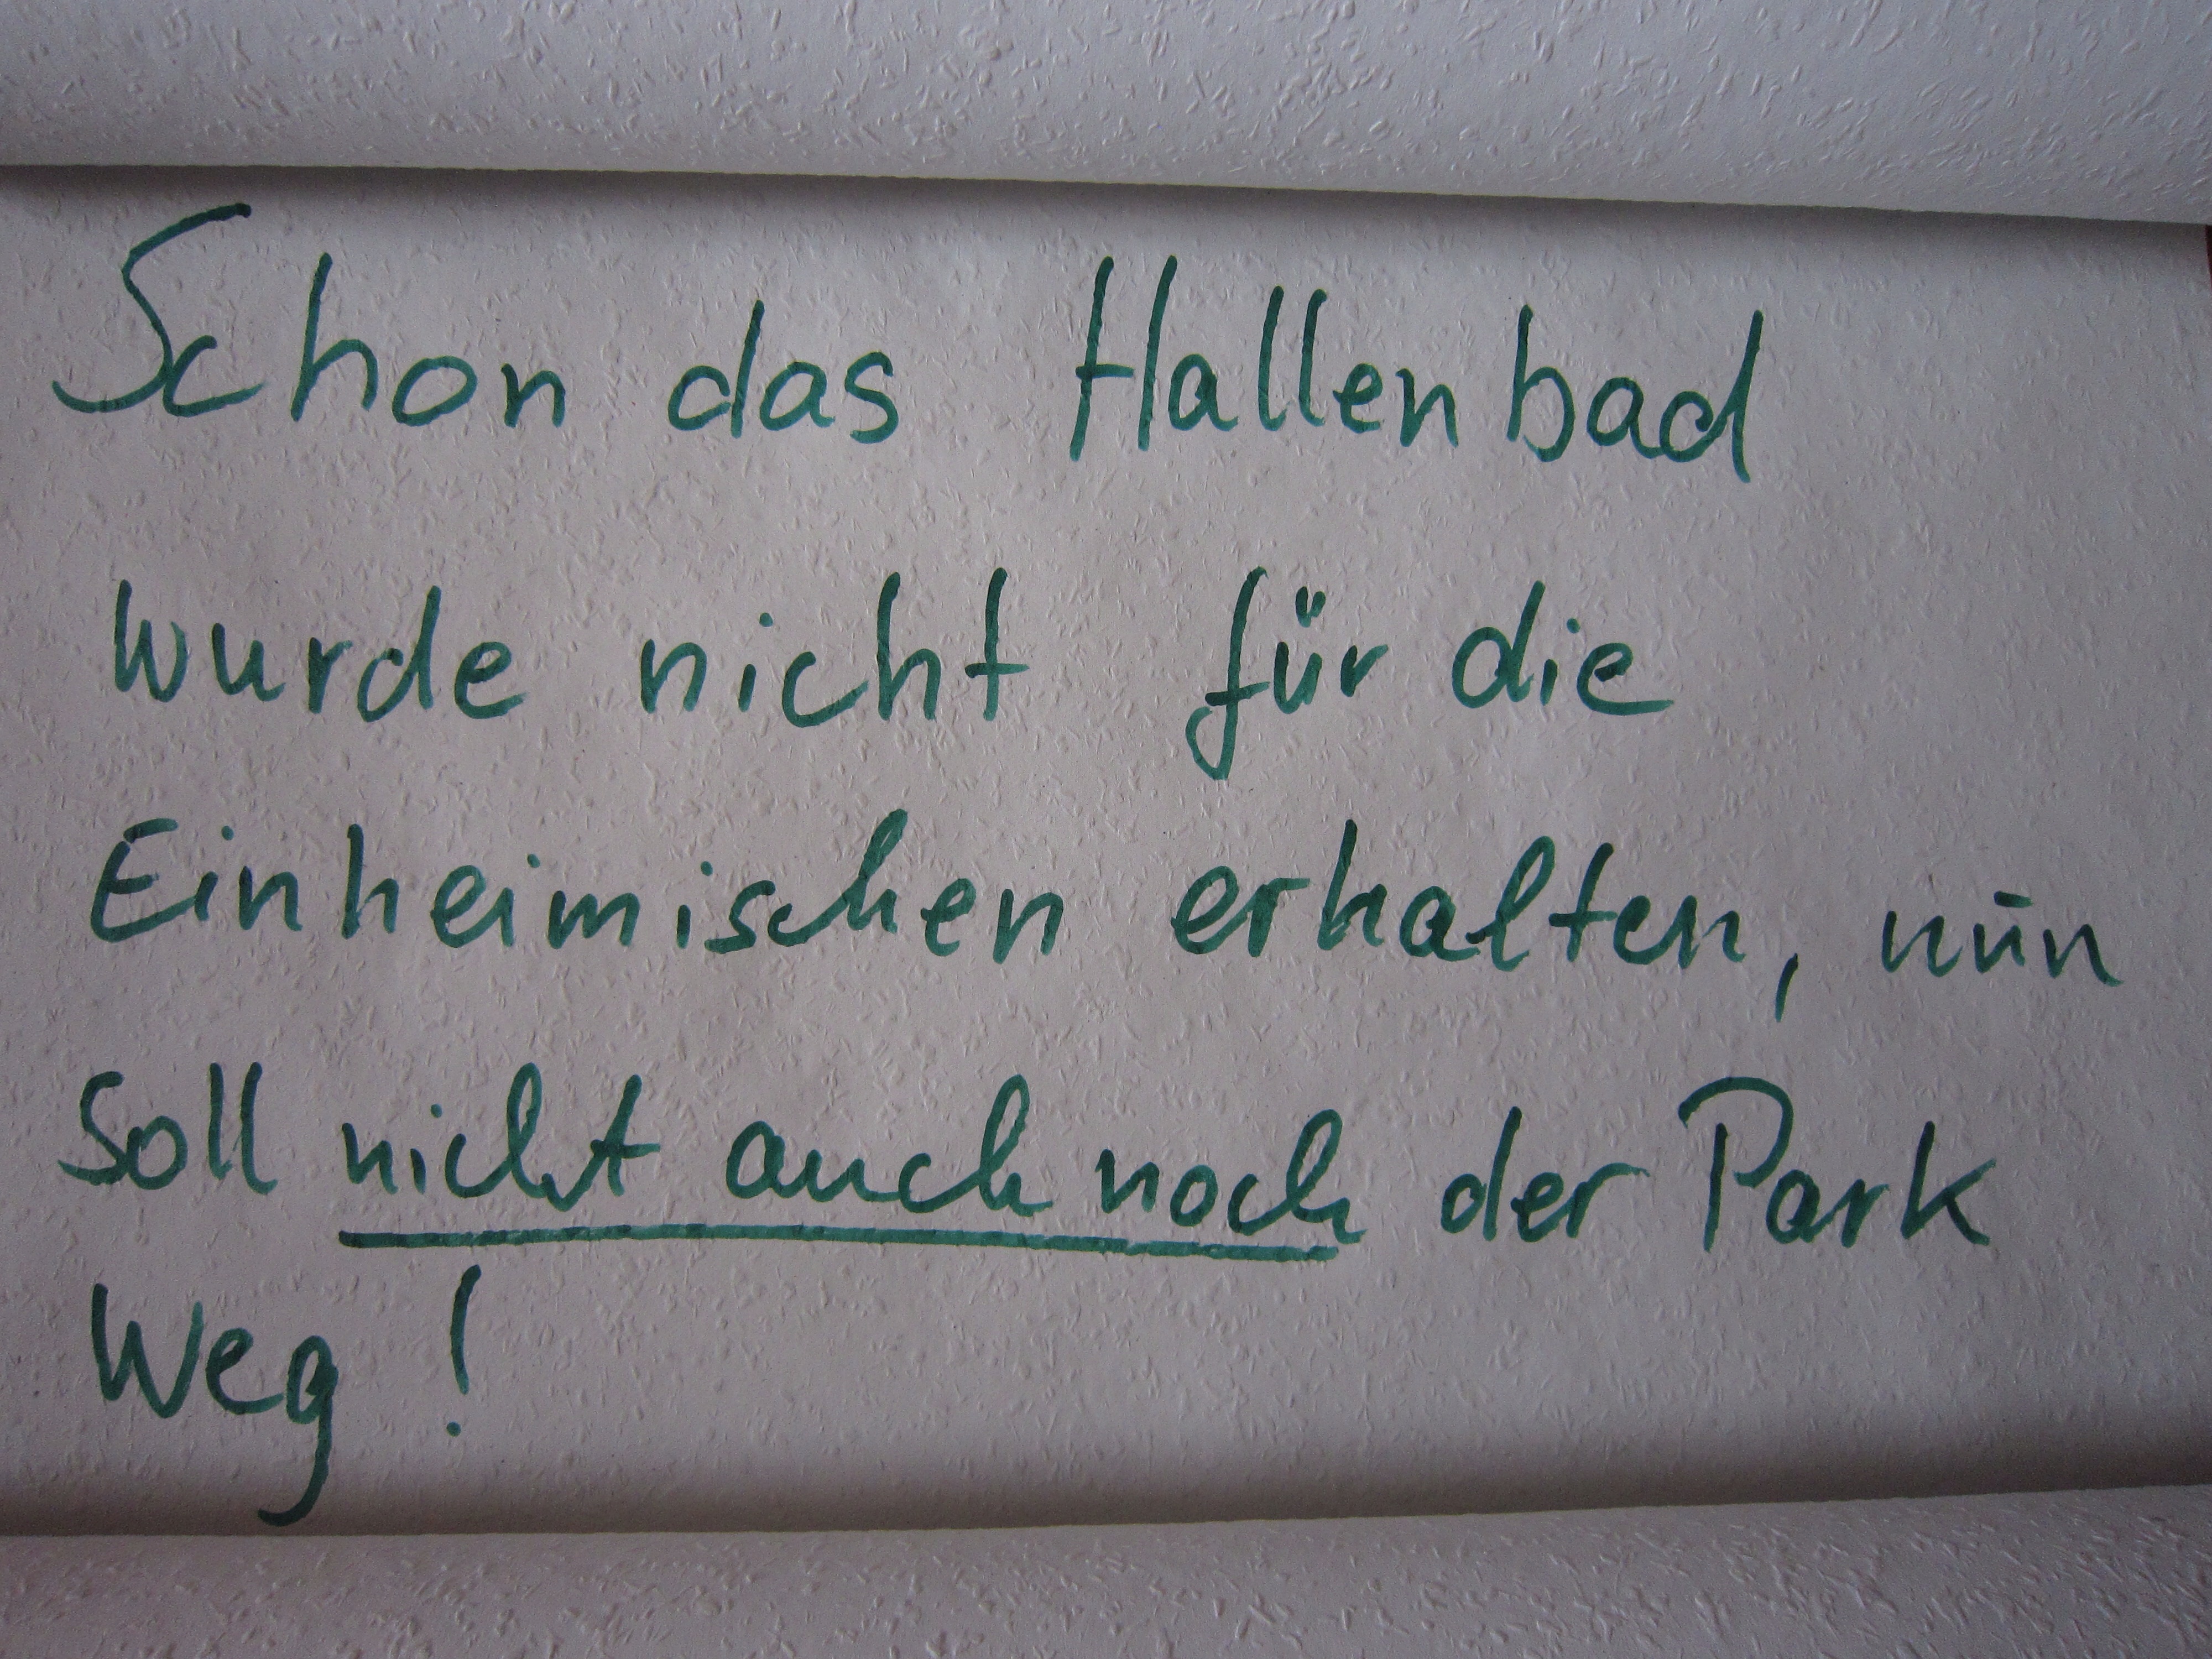 Schon das Hallenbad
wurde nicht für die
Einheimischen erhalten, nun
soll nicht auch noch der Park
weg!